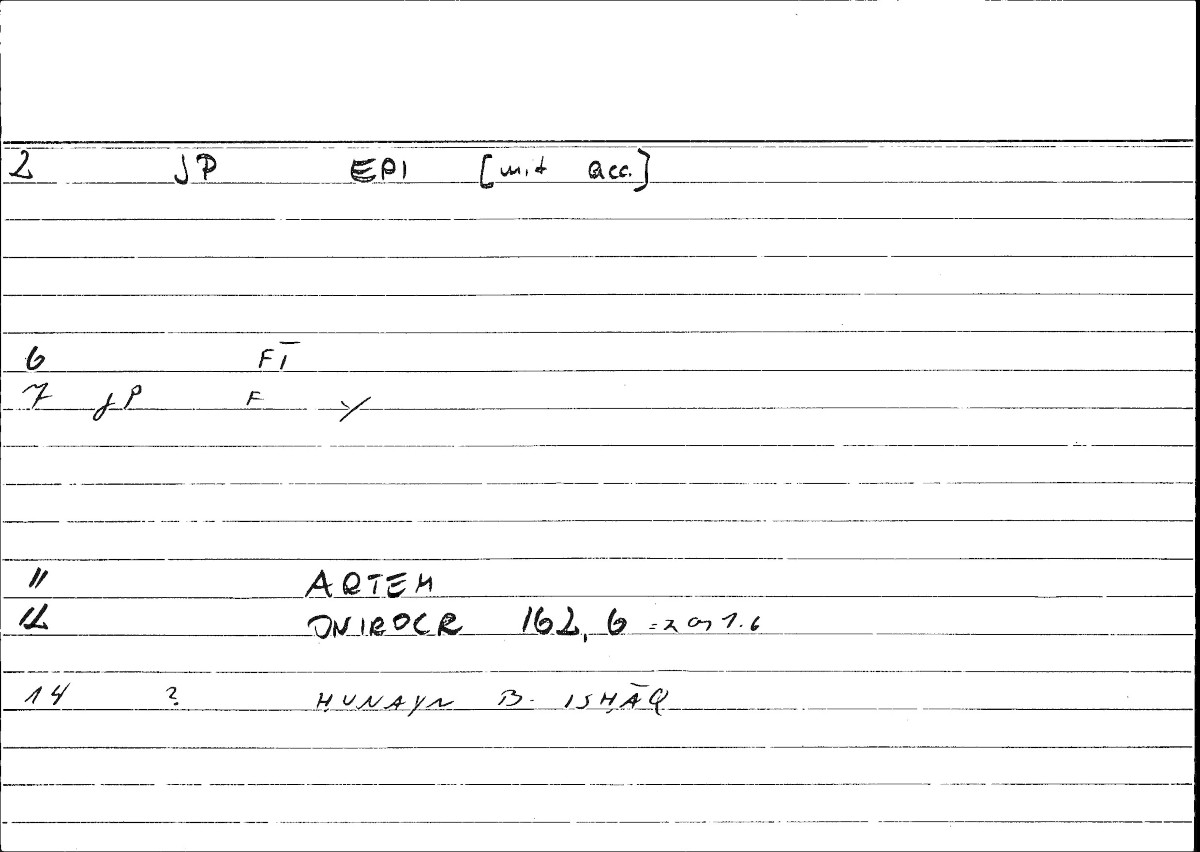 2 JP EPI [mit acc.]
6 FĪ
7 JP F
11 ARTEM
12 ONIROCR 162, 6
14 ? ḤUNAYN B. ISḤĀQ